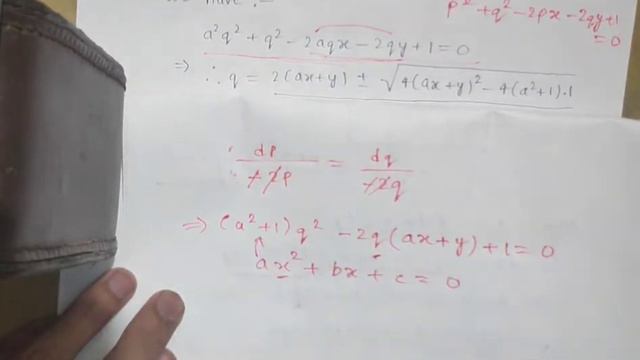 p² + q² - 2px - 2qy + 1 = 0
a²q² + q² - 2aqx - 2qy + 1 = 0
⇒ ∴ q = 2(ax+y) ± √4(ax+y)² - 4(a²+1)·1
dp/+2p = dq/+2q
⇒ (a²+1)q² - 2q(ax+y) + 1 = 0
ax² + bx + c = 0